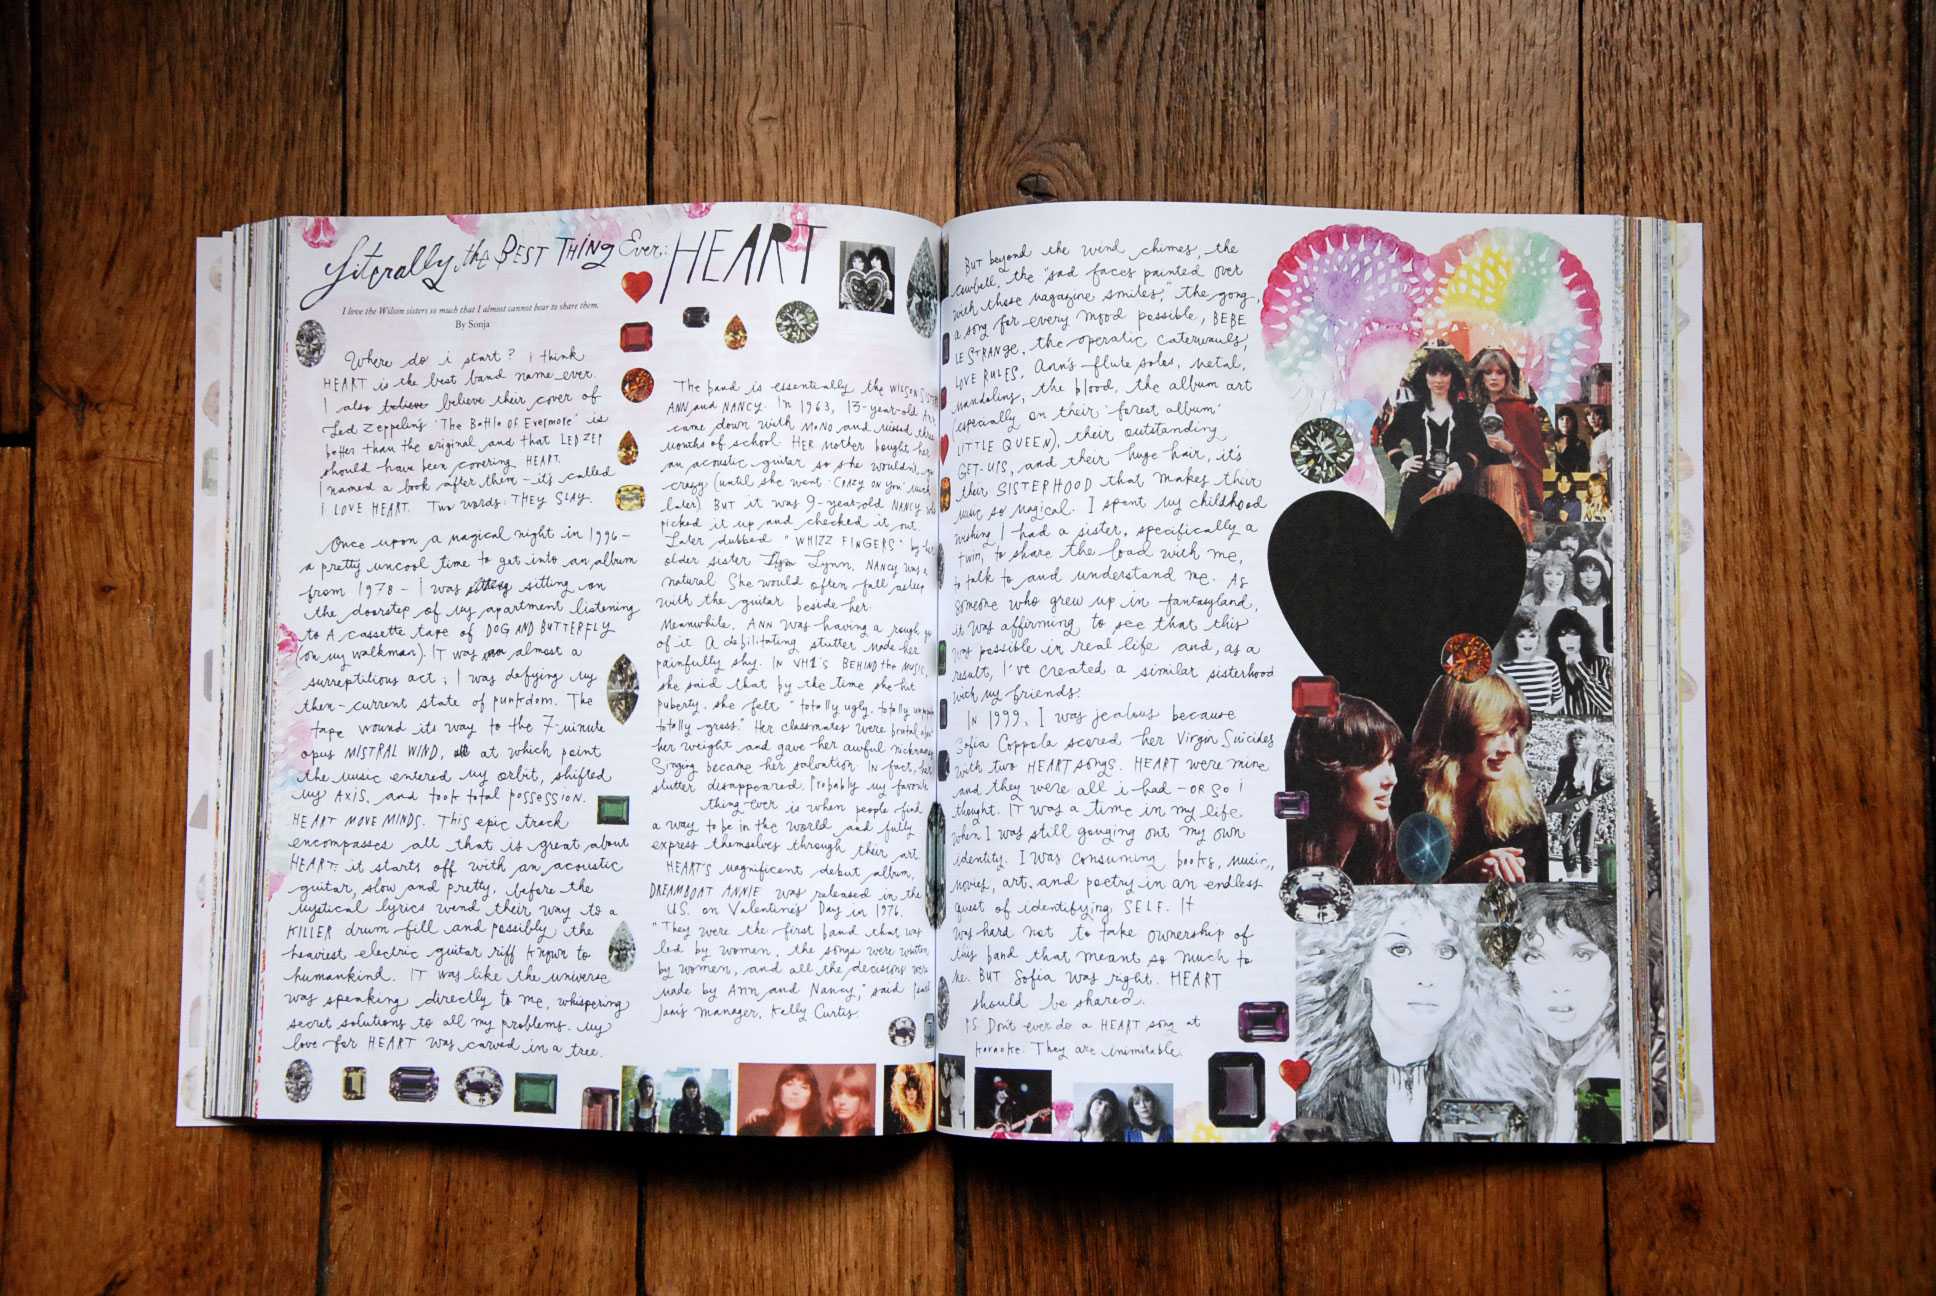 Literally the BEST THING Ever: HEART
I love the Wilson sisters so much that I almost cannot bear to share them.
By Sonja
Where do i start? i think
HEART is the best band name ever.
I also believe believe their cover of
Led Zeppelin's 'The Battle of Evermore' is
better than the original and that LED ZEP
should have been covering HEART.
I named a book after them - it's called
I LOVE HEART. Two words: THEY SLAY.
Once upon a magical night in 1996 -
a pretty uncool time to get into an album
from 1978 - I was sitting on
the doorstep of my apartment listening
to A cassette tape of DOG AND BUTTERFLY
(on my walkman). IT was almost a
surreptitious act; I was defying my
then-current state of punkdom. The
tape wound its way to the 7-minute
opus MISTRAL WIND, at which point
the music entered my orbit, shifted
my AXIS, and took total possession.
HEART MOVE MINDS. This epic track
encompasses all that is great about
HEART: it starts off with an acoustic
guitar, slow and pretty, before the
mystical lyrics wend their way to a
KILLER drum fill and possibly the
heaviest electric guitar riff known to
humankind. IT was like the universe
was speaking directly to me, whispering
secret solutions to all my problems. My
love for HEART was carved in a tree.
The band is essentially the WILSON
ANN and NANCY. In 1963, 13-year-old Ann
came down with MONO and missed three
months of school. HER mother bought her
an acoustic guitar so she wouldn't go
crazy (until she went 'CRAZY ON YOU' much
later). BUT it was 9-year-old NANCY who
picked it up and checked it out.
Later dubbed "WHIZZ FINGERS" by her
older sister Lynn, NANCY was a
natural. She would often fall asleep
with the guitar beside her.
Meanwhile, ANN was having a rough go
of it. A debilitating stutter made her
painfully shy. IN VH1's BEHIND the MUSIC,
she said that by the time she hit
puberty, she felt "totally ugly, totally
totally gross." Her classmates were brutal about
her weight and gave her awful nicknames.
Singing became her salvation. IN fact, her
stutter disappeared. Probably my favorite
thing ever is when people find
a way to be in the world and fully
express themselves through their art.
HEART'S magnificent debut album,
DREAMBOAT ANNIE was released in the
U.S. on Valentine's Day in 1976.
"They were the first band that was
led by women, the songs were written
by women, and all the decisions were
made by Ann and Nancy," said
manager, Kelly Curtis.
BUT beyond the wind chimes, the
cowbell, the "sad faces painted over
with those magazine smiles," the gong,
a song for every mood possible, BEBE
LE STRANGE, the operatic caterwauls,
LOVE RULES, Ann's flute solos, metal,
mandolins, the blood, the album art
(especially on their 'forest album'
LITTLE QUEEN), their outstanding
GET-UPS, and their huge hair, it's
their SISTERHOOD that makes their
music so magical. I spent my childhood
wishing I had a sister, specifically a
twin, to share the load with me,
to talk to and understand me. As
someone who grew up in fantasyland,
it was affirming to see that this
was possible in real life and, as a
result, I've created a similar sisterhood
with my friends.
IN 1999, I was jealous because
Sofia Coppola scored her Virgin Suicides
with two HEART songs. HEART were mine
and they were all i had - OR SO I
thought. IT was a time in my life
when I was still gouging out my own
identity. I was consuming books, music,
movies, art, and poetry in an endless
quest of identifying SELF. It
was hard not to take ownership of
this band that meant so much to
me. BUT Sofia was right. HEART
should be shared.
PS Don't ever do a HEART song at
karaoke. They are inimitable.